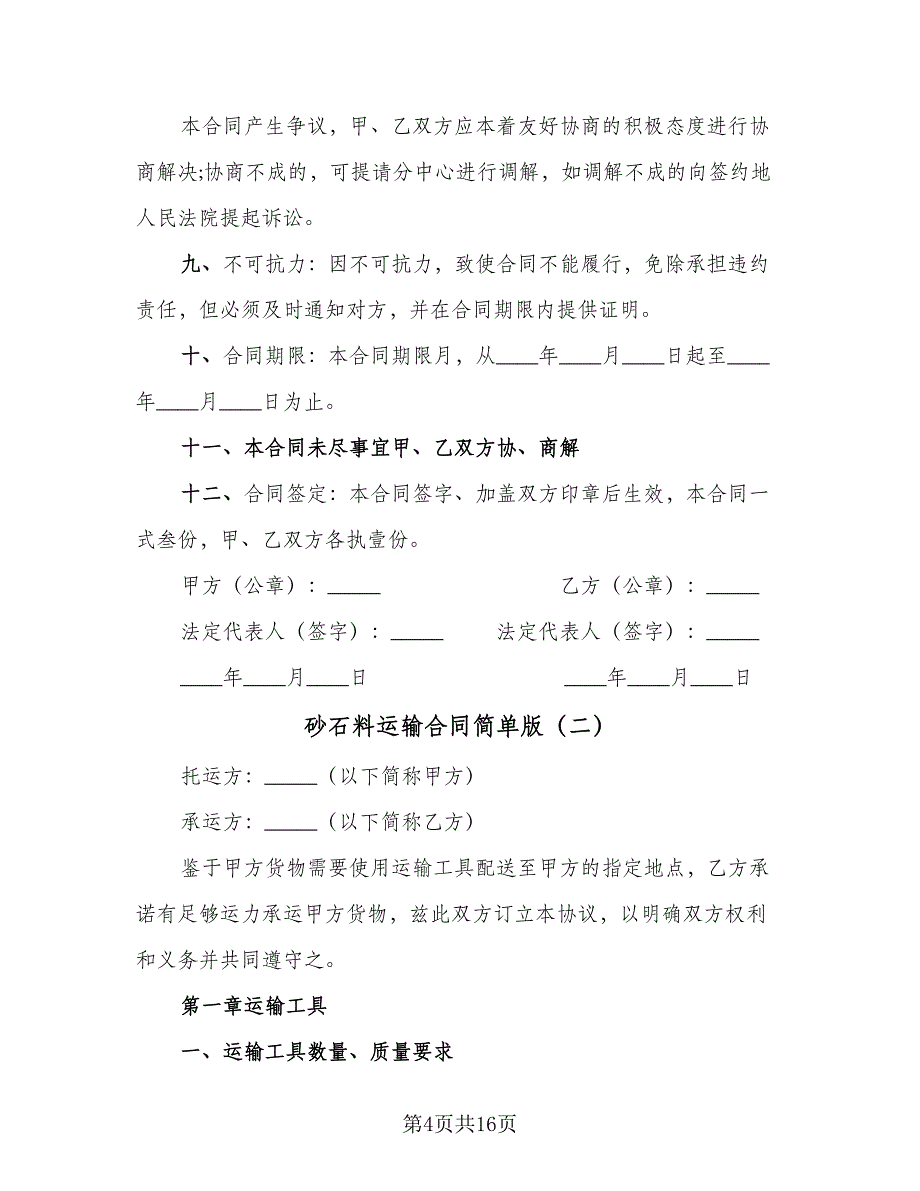 本合同产生争议，甲、乙双方应本着友好协商的积极态度进行协
商解决;协商不成的，可提请分中心进行调解，如调解不成的向签约地
人民法院提起诉讼。
九、不可抗力：因不可抗力，致使合同不能履行，免除承担违约
责任，但必须及时通知对方，并在合同期限内提供证明。
十、合同期限：本合同期限月，从____年____月____日起至____
年____月____日为止。
十一、本合同未尽事宜甲、乙双方协、商解
十二、合同签定：本合同签字、加盖双方印章后生效，本合同一
式叁份，甲、乙双方各执壹份。
甲方（公章）：_____ 乙方（公章）：_____
法定代表人（签字）：_____ 法定代表人（签字）：_____
____年____月____日 ____年____月____日
砂石料运输合同简单版（二）
托运方：_____（以下简称甲方）
承运方：_____（以下简称乙方）
鉴于甲方货物需要使用运输工具配送至甲方的指定地点，乙方承
诺有足够运力承运甲方货物，兹此双方订立本协议，以明确双方权利
和义务并共同遵守之。
第一章运输工具
一、运输工具数量、质量要求
第4页共16页